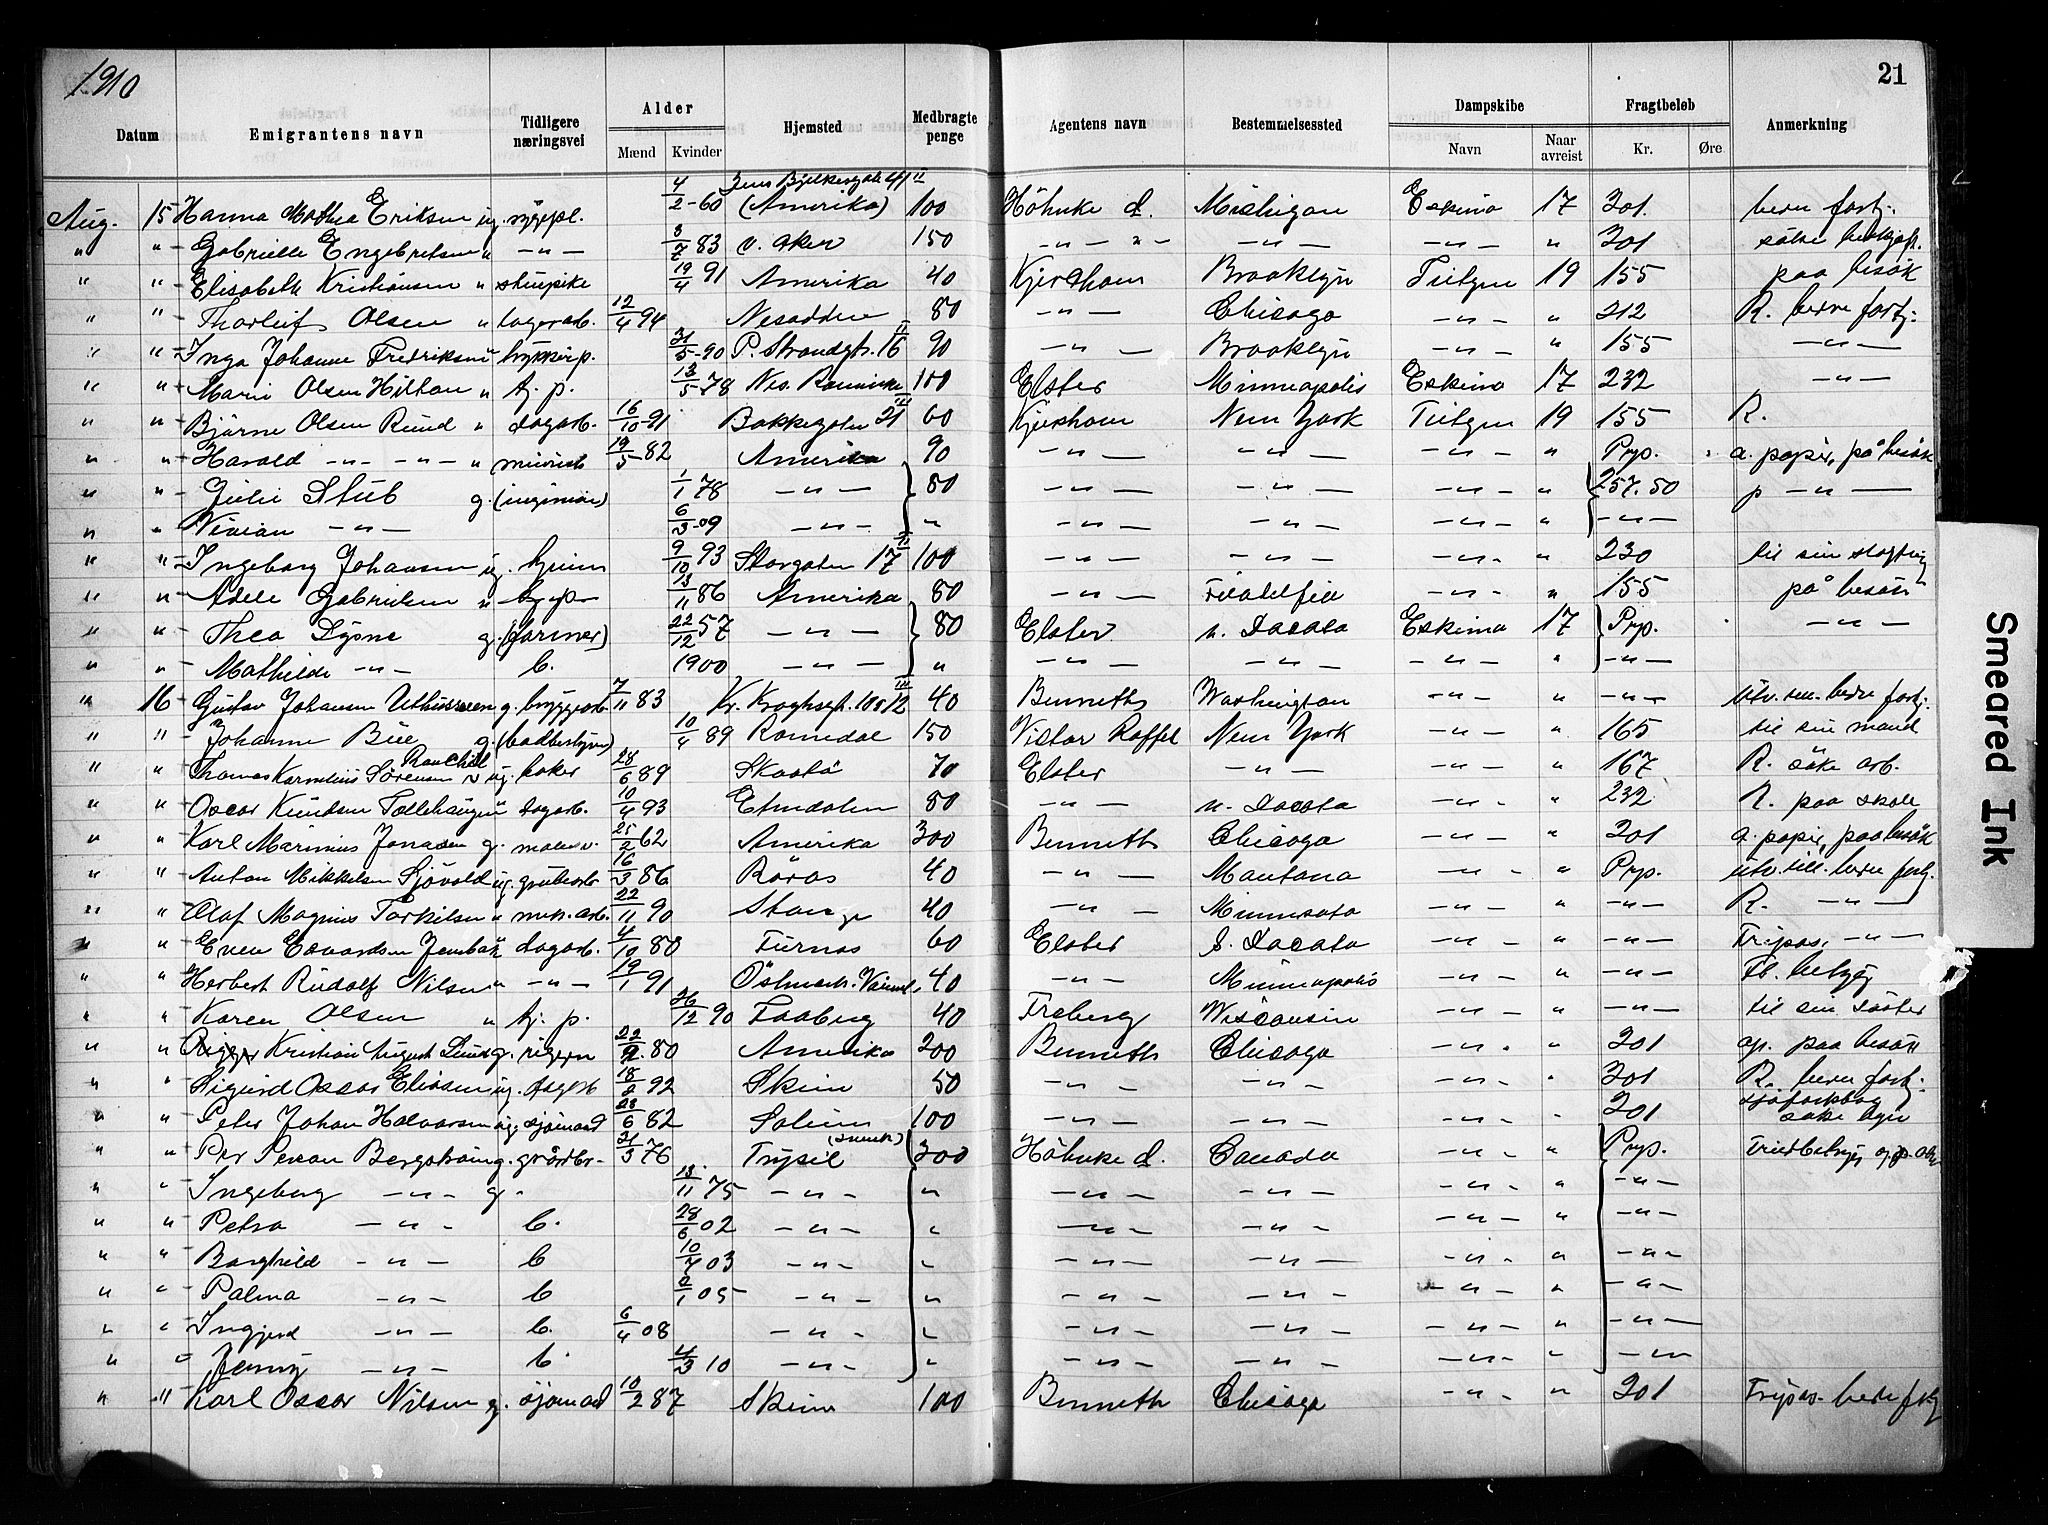 1910
21
Datum Emigrantens navn Tidligere næringsvei Alder Mænd Kvinder Hjemsted Medbragte penge Agentens navn Bestemmelsessted Dampskibe Navn Naar avreist Fragtbeløb Kr. Øre Anmerkning
Aug. 15 Hanna Mathea Eriksen ug. sygepl. 4/2-60 Jens Bjelkesgate 41 II (Amerika) 100 Höhnke d. Michigan Eskimo 17 201. bedre fortj.
" " Gabrielle Engebretsen " -"- 3/7 83 v. Aker 150 -"- "- -"- -"- " 301 søke beskjeft.
" " Elisabeth Kristiansen " stuepike 19/4 91 Amerika 40 Kjershom Brooklyn Tietgen 19 155 paa besök
" " Thorleif Olsen " lagerarb. 12/4 94 Nesodden 80 -"- Chicago -"- " 212 R. bedre fortj.
" " Inga Johanne Fredriksen " trykkerip. 31/5-90 P. Strandgt. 16 II 90 -"- Brooklyn -"- " 155 -"-
" " Marie Olsen Hilton " tj. p. 13/5 78 Nes. Romerike 100 Elster Minneapolis Eskimo 17 232 -"-
" " Bjarne Olsen Rund " dagarb. 16/10 91 Bakkegaten 21 III 60 Kjershom New York Tietgen 19 155 R.
" " Harald -"- -"- " 19/5 82 Amerika 90 -"- -"- -"- " Prp. a. papir, på besök
" " Julie Stub g. (ingeniør) 1/1 78 -"- 80 -"- -"- -"- " 257.50 p -"-
" " Vivian -"- 6/3-09 -"- " -"- -"- -"- " -"-
" " Ingeborg Johansen ug. hjem 9/10 93 Storgaten 17 100 -"- -"- -"- " 230 til sin slegtning
" " Adele Gabrielsen " tj. p. 13/11 86 Amerika 80 -"- Filadelfia -"- " 155 på besök
" " Thea Lysne g. (farmer) 22/12 57 -"- 80 Elster n. Dacota Eskimo 17 Prp. -"-
" " Mathilde -"- b. 1900 -"- " -"- -"- -"- " -"-
" 16 Gustav Johansen g. bryggearb 7/11 83 Kr. Kroghsgt. 10 III 40 Benneth Washington -"- " -"- utv. bedre fortj.
" " Johanne Bue g. (badbestyrer) 10/4 89 Romedal 150 Victor Roffel New York -"- " 165 til sin mand
" " Thomas Kornelius Sørensen ug. baker 28/6 89 Skaatö 70 Elster -"- -"- " 167 R. söke arb.
" " Oscar Knudsen Tollehaugen " dagarb. 10/4 93 Etnedalen 80 -"- n. Dacota -"- " 232 R. paa skole
" " Karl Marinius Jonasen g. 25/2 62 Amerika 300 Benneth Chicago -"- " 201 a. papir, paa besök
" " Anton Mikkelsen Sjövold ug. grubearb 16/3 86 Röros 40 -"- Montana -"- " Prp. utv. till. bedre fortj.
" " Olaf Magnus Torkilsen " mek. arb. 22/11 90 Stange 40 -"- Minnesota -"- " -"- R. -"-
" " Even Edvardsen Jembak " dagarb. 4/10 80 Furnes 60 Elster S. Dacota -"- " -"- Fripas, -"-
" " Herbert Rudolf Nilsen " -"- 19/1 91 Östmark. Værml. 40 -"- Minneapolis -"- " -"- Fl. betyg
" " Karen Olsen " tj. p. 26/12 90 Faaberg 40 Freberg Wisconsin -"- " -"- til sin söster
" " Kristian August Lund g. 22/2 80 Amerika 200 Benneth Chicago -"- " 201 ap. paa besök
" " Sigurd Oscar Eliasen ug. dagarb 18/2 92 Skien 50 -"- -"- -"- " 301 R. bedre fortj.
" " Peter Johan Halvorsen ug. sjömand 23/6 82 Solum 100 -"- -"- -"- " 201 sjöfartsbog söke hyre
" " Per Person Bergström g. gårdbr- 21/3 76 Trysil (svensk) 300 Höhnke d. Canada -"- " Prp.
" " Ingeborg -"- g - 13/11 75 -"- " -"- -"- -"- " -"-
" " Petra -"- b. 28/6 02 -"- " -"- -"- -"- " -"-
" " Borghild -"- b 10/7 03 -"- " -"- -"- -"- " -"-
" " Palma -"- b 2/1 05 -"- " -"- -"- -"- " -"-
" " Ingjerd -"- b. 6/4 08 -"- " -"- -"- -"- " -"-
" " Jenny -"- b 4/3 10 -"- " -"- -"- -"- " -"-
" " Karl Oscar Nilsen g. sjömand 10/2 87 Skien 100 Benneth Chicago -"- " 201 Fripas. bedre fortj
Smeared Ink